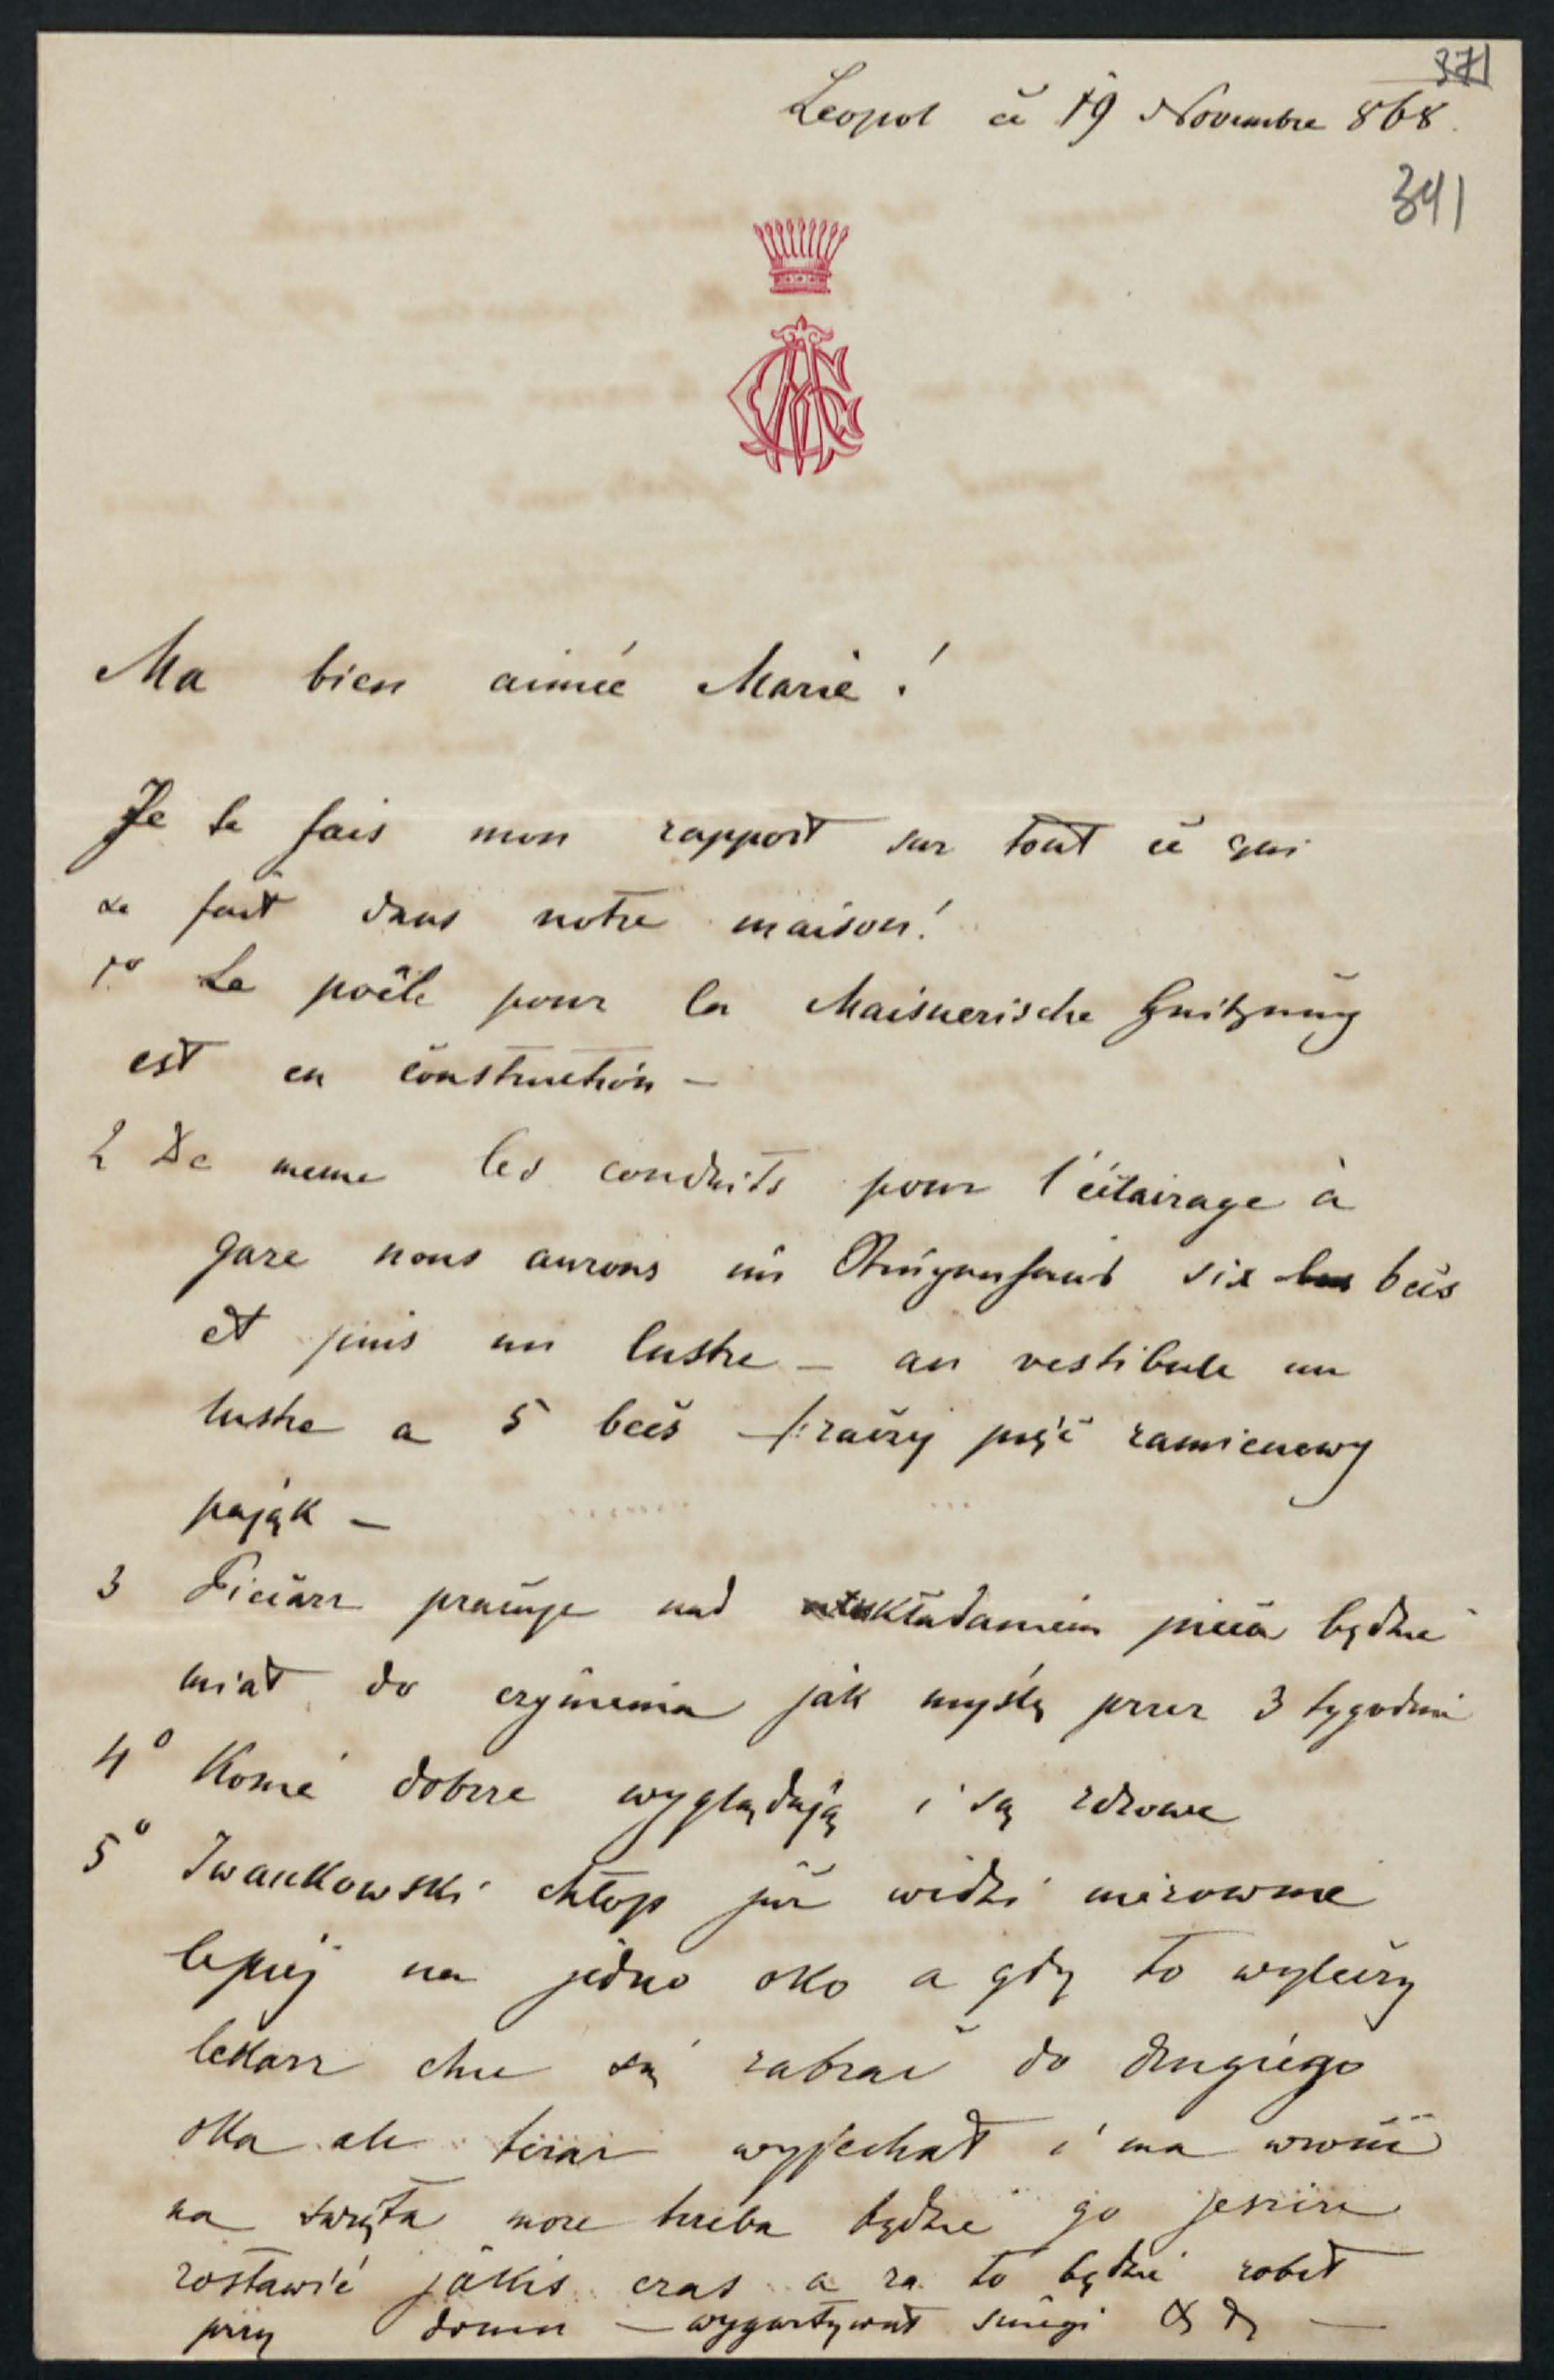 371
Leopol ce 19 Novembre 868.
341
Ma bien aimée Marie!
Je te fais mon rapport sur tout ce qui
se fait dans notre maison!
1º Le poêle pour la Maisnerische
est en construction —
2 De meme les conduits pour l'éclairage à
gaze nous aurons im six bes becs
et puis un lustre — au vestibule un
lustre a 5 becs —/: raczej pięć ramienowy
pająk —
3 Ficiarz pracuje nad układaniem pieca będzie
miał do czynienia jak myślę przez 3 tygodnie
4º Konie dobrze wyglądają i są zdrowe
5º Iwankowski chłop już widzi nierownie
lepiej na jedno oko a gdy to wyleczy
lekarz chce się zabrać do drugiego
oka ale teraz wyjechał i ma wrócić
na święta może trzeba będzie go jeszcze
zostawić jakiś czas a za to będzie robił
przy domu — wygartywał śniegi & &